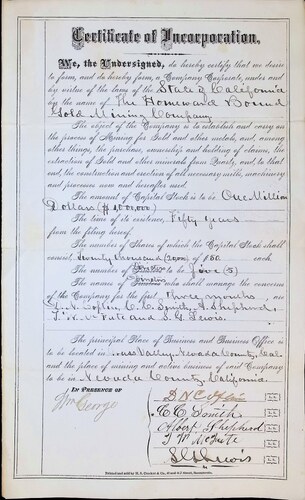 Certificate of Incorporation.
We, the Undersigned, do hereby certify that we desire
to form, and do hereby form, a Company Corporate, under and
by virtue of the laws of the State of California
by the name of The Homeward Bound
Gold Mining Company
The object of the Company is to establish and carry on
the process of Mining for Gold and other metals, and, among
other things, the purchase, ownership and holding of claims, the
extraction of Gold and other minerals from Quartz, and, to that
end, the construction and erection of all necessary mills, machinery
and processes now and hereafter used.
The amount of Capital Stock is to be One Million
Dollars
The time of its existence, Fifty years
from the filing hereof
The number of Shares of which the Capital Stock shall
consist thousand of $50 each
The number of to be five (5)
The names of who shall manage the concerns
of the Company for the first three months, are
C. C. Smith, A. Shepherd,
and S. G. Lewis.
The principal Place of Business and Business Office is
to be located in Grass Valley, Nevada County, Cal
and the place of mining and active business of said Company
to be in Nevada County, California.
IN PRESENCE OF
Wm George
D N C
C C Smith
Albert Shepherd
S G Lewis